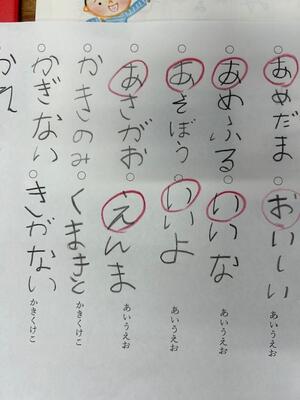 ○あめだま
○おいしい
あいうえお
○あめふる
○いいな
あいうえお
○あそぼう
○いいよ
あいうえお
○あさがお
○えんま
あいうえお
○かきのみ
○くまきと
かきくけこ
○かぎない
○きがない
かきくけこ